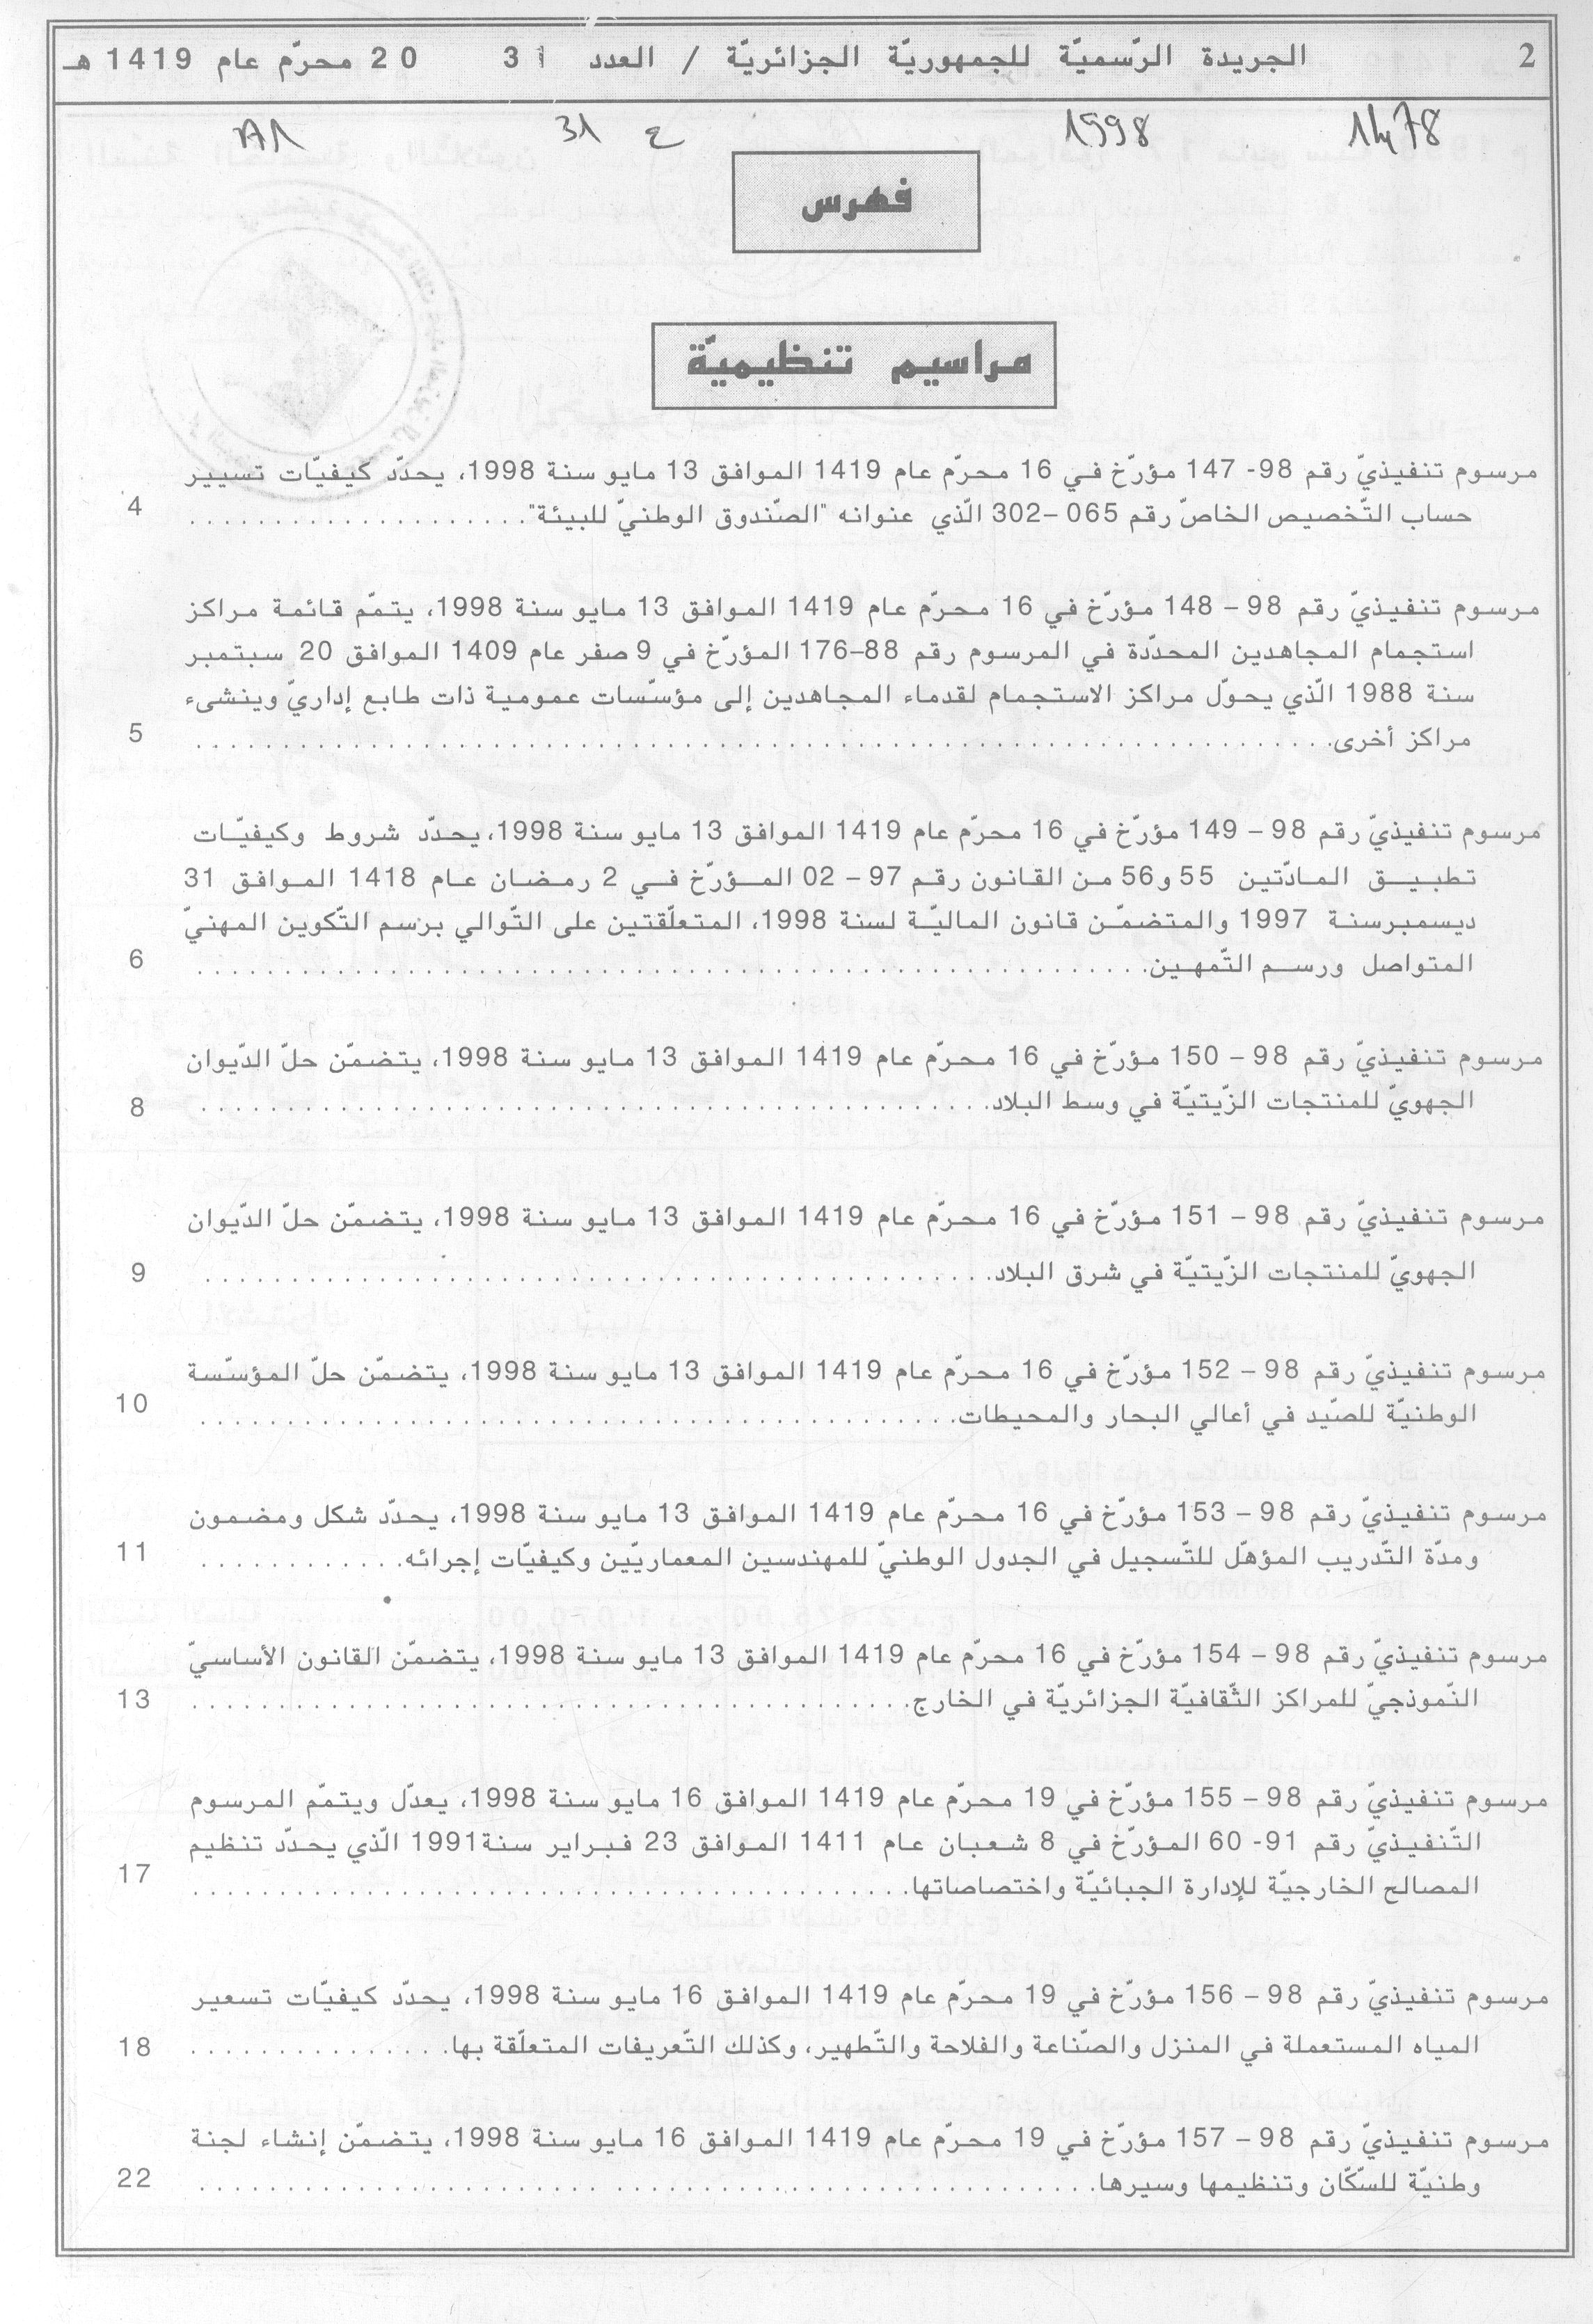 2 الجريدة الرّسميّة للجمهوريّة الجزائريّة / العدد 31 20 محرّم عام 1419 هـ
1998 ع 31
فهرس
مراسيم تنظيميّة
مرسوم تنفيذيّ رقم 98- 147 مؤرّخ في 16 محرّم عام 1419 الموافق 13 مايو سنة 1998، يحدّد كيفيّات تسيير
حساب التّخصيص الخاصّ رقم 065 –302 الّذي عنوانه "الصّندوق الوطنيّ للبيئة". . . . . . . . . . . . . . . . . . . . 4
مرسوم تنفيذيّ رقم 98 – 148 مؤرّخ في 16 محرّم عام 1419 الموافق 13 مايو سنة 1998، يتمّم قائمة مراكز
استجمام المجاهدين المحدّدة في المرسوم رقم 88–176 المؤرّخ في 9 صفر عام 1409 الموافق 20 سبتمبر
سنة 1988 الّذي يحوّل مراكز الاستجمام لقدماء المجاهدين إلى مؤسّسات عمومية ذات طابع إداريّ وينشىء
مراكز أخرى. . . . . . . . . . . . . . . . . . . . 5
مرسوم تنفيذيّ رقم 98 – 149 مؤرّخ في 16 محرّم عام 1419 الموافق 13 مايو سنة 1998، يحدّد شروط وكيفيّات
تطبيـق المـادّتين 55 و56 من القانون رقم 97 – 02 المـؤرّخ فـي 2 رمضان عام 1418 الموافق 31
ديسمبرسنة 1997 والمتضمّن قانون الماليّة لسنة 1998، المتعلّقتين على التّوالي برسم التّكوين المهنيّ
المتواصل ورسم التّمهين. . . . . . . . . . . . . . . . . . . . 6
مرسوم تنفيذيّ رقم 98 – 150 مؤرّخ في 16 محرّم عام 1419 الموافق 13 مايو سنة 1998، يتضمّن حلّ الدّيوان
الجهويّ للمنتجات الزّيتيّة في وسط البلاد. . . . . . . . . . . . . . . . . . . . 8
مرسوم تنفيذيّ رقم 98 – 151 مؤرّخ في 16 محرّم عام 1419 الموافق 13 مايو سنة 1998، يتضمّن حلّ الدّيوان
الجهويّ للمنتجات الزّيتيّة في شرق البلاد. . . . . . . . . . . . . . . . . . . . 9
مرسوم تنفيذيّ رقم 98 – 152 مؤرّخ في 16 محرّم عام 1419 الموافق 13 مايو سنة 1998، يتضمّن حلّ المؤسّسة
الوطنيّة للصّيد في أعالي البحار والمحيطات. . . . . . . . . . . . . . . . . . . . 10
مرسوم تنفيذيّ رقم 98 – 153 مؤرّخ في 16 محرّم عام 1419 الموافق 13 مايو سنة 1998، يحدّد شكل ومضمون
ومدّة التّدريب المؤهّل للتّسجيل في الجدول الوطنيّ للمهندسين المعماريّين وكيفيّات إجرائه. . . . . . . . . . . . 11
مرسوم تنفيذيّ رقم 98 – 154 مؤرّخ في 16 محرّم عام 1419 الموافق 13 مايو سنة 1998، يتضمّن القانون الأساسيّ
النّموذجيّ للمراكز الثّقافيّة الجزائريّة في الخارج. . . . . . . . . . . . . . . . . . . . 13
مرسوم تنفيذيّ رقم 98 – 155 مؤرّخ في 19 محرّم عام 1419 الموافق 16 مايو سنة 1998، يعدّل ويتمّم المرسوم
التّنفيذيّ رقم 91- 60 المؤرّخ في 8 شعبان عام 1411 الموافق 23 فبراير سنة1991 الّذي يحدّد تنظيم
المصالح الخارجيّة للإدارة الجبائيّة واختصاصاتها. . . . . . . . . . . . . . . . . . . . 17
مرسوم تنفيذيّ رقم 98 – 156 مؤرّخ في 19 محرّم عام 1419 الموافق 16 مايو سنة 1998، يحدّد كيفيّات تسعير
المياه المستعملة في المنزل والصّناعة والفلاحة والتّطهير، وكذلك التّعريفات المتعلّقة بها. . . . . . . . . . . . . . . 18
مرسوم تنفيذيّ رقم 98 – 157 مؤرّخ في 19 محرّم عام 1419 الموافق 16 مايو سنة 1998، يتضمّن إنشاء لجنة
وطنيّة للسّكّان وتنظيمها وسيرها. . . . . . . . . . . . . . . . . . . . 22